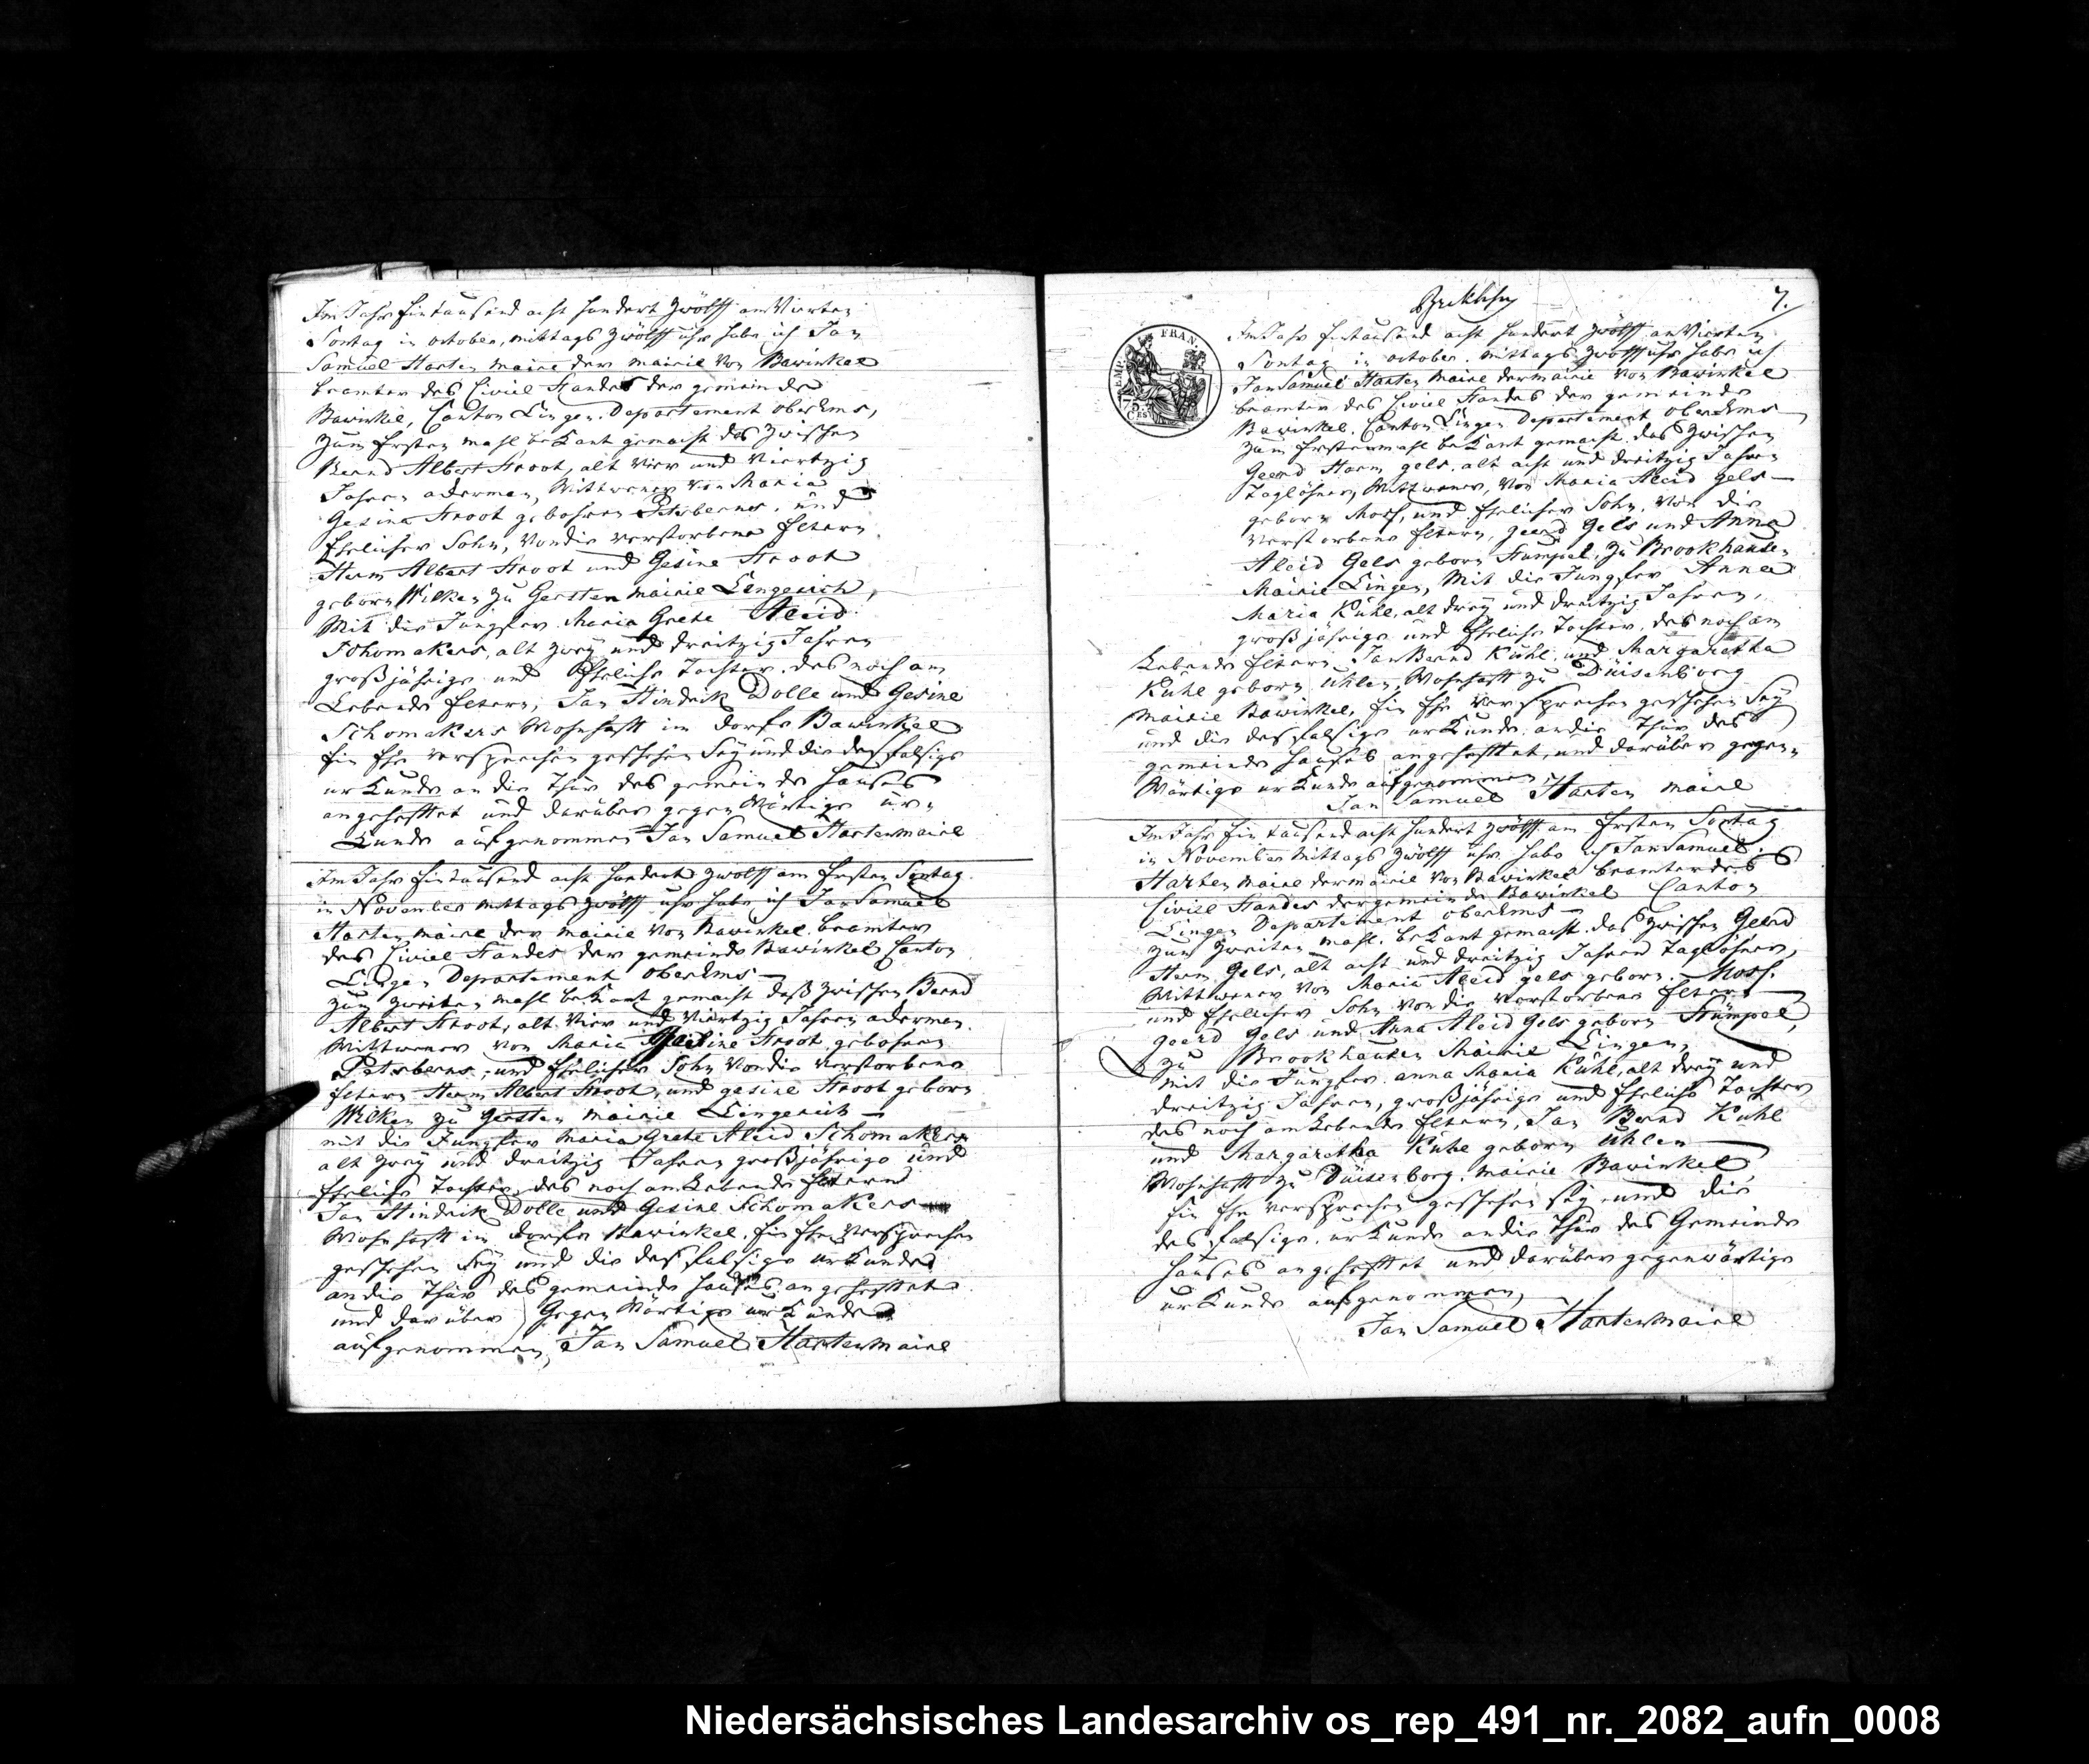 Im Jahr Eintausend acht hundert zwölff am Vierten
Sontag in october, mittags zwölff uhr habe ich Jan
Samuel Harten maire der mairie von Bawinkel
beamter des Civiel Standes der gemeinde
Bawinkel, Canton Lingen, Departement oberEms,
zum Ersten mahl bekant gemacht das zwischen
Bernd Albert Stroot, alt Vier und Viertzig
Jahren ackerman, Wittwener von Maria
Gesina Stroot gebohren, und
Ehelicher Sohn, von die verstorbene Eltern
Herm Albert Stroot und Gesine Stroot
geborn Wilken zu Gersten mairie Lengerich,
Mit die Jungfer Maria Grete Aleid
Schomakers, alt zwey und dreitzig Jahren
großjährige und Ehelige Tochter, des noch am
Lebende Eltern, Jan Hindrik Dolle und Gesine
Schomakers Wohnhafft im dorfe Bawinkel
Ein Ehe versprechen geschehen Sey und die desfalsige
urkunde an die Thür des gemeinde hauses
angehefftet und darüber gegen Wärtige ur„
Kunde aufgenommen Jan Samuel Harten maire
Im Jahr Eintausend acht hundert zwölff am Ersten Sontag
in November mittags zwölff uhr habe ich Jan Samuel
Harten maire der mairie von Bawinkel beamter
des Civiel Standes der gemeinde Bawinkel Canton
Lingen Departement oberEms
zum zweiten mahl bekant gemacht daß zwischen Bernd
Albert Stroot, alt Vier und Viertzig Jahren ackerman
Wittwener von Maria Gesine Stroot gebohren
und Ehelicher Sohn von die verstorbene
Eltern Herm Albert Stroot, und gesine Stroot geborn
Wilken zu Gersten mairie Lengerich
mit die Jungfer Maria Grete Aleid Schomakers
alt zwey und dreitzig Jahren großjährige und
Ehelige Tochter, des noch am Lebende Eltern
Jan Hindrik Dolle und Gesine Schomakers
Wohnhafft in dorfe Bawinkel, Ein Ehe versprechen
geschehen Sey und die desfalsige urkunde
an die Thür des gemeinde hauses angehefftet
und darüber Gegen Wärtige urkunde
aufgenommen, Jan Samuel Harten maire
7.
FRAN.
75.
CES
Im Jahr Eintausend acht hundert zwölff am Vierten
Sontag in october, mittags zwölff uhr habe ich
Jan Samuel Harten maire der mairie von Bawinkel
beamter des Civiel Standes der gemeinde
Bawinkel, Canton Lingen Departement oberEms
zum Erstenmahl bekant gemacht das zwischen
Geerd Harm gels, alt acht und dreitzig Jahren
Taglöhner, Wittwener, von Maria Aleid gels
geborn Moss, und Ehelicher Sohn, von die
verstorbene Eltern, geerd Gels und Anna
Aleid Gels geborn Stumpel, zu Brookhausen
Mairie Lingen, Mit die Jungfer Anna
Maria Kühl, alt drey und dreitzig Jahren,
großjährige und Ehelige Tochter, des noch am
Lebende Eltern Jan Bernd Kühl und Margaretha
Kühl geborn Uhlen, Wohnhafft zu Düisenborg
mairie Bawinkel, Ein Ehe versprechen geschehen Sey
und die desfalsige urkunde an die Thür des
gemeinde hauses angehefftet, und darüber gegen„
Wärtige urkunde aufgenommen
Jan Samuel Harten maire
Im Jahr Ein tausend acht hundert zwölff am Ersten Sontag
in November Mittags zwölff uhr habe ich Jan Samuel
Harten maire der mairie von Bawinkel beamter des
Civiel Standes der gemeinde Bawinkel Canton
Lingen Departement oberEms
zum zweiten mahl bekant gemacht das zwischen Geerd
Herm Gels, alt acht und dreitzig Jahren Taglöhner,
Wittwener von Maria Aleid gels geborn Moss,
und Ehelicher Sohn von die verstorbene Eltern
geerd Gels und Anna Aleid Gels geborn Stümpel,
zu Brookhausen Mairie Lingen,
mit die Jungfer anna Maria Kühl, alt drey und
dreitzig Jahren, großjährige und Ehelige Tochter
des noch am Lebende Eltern, Jan Bernd Kühl
und Margaretha Kühl geborn Uhlen
Wohnhafft zu Düisenborg, mairie Bawinkel,
Ein Ehe versprechen geschehen sey und die
desfalsige urkunde an die Thür des Gemeinde
hauses angehefftet und darüber gegenwärtige
urkunde aufgenommen,
Jan Samuel Harten maire
Niedersächsisches Landesarchiv os_rep_491_nr._2082_aufn_0008